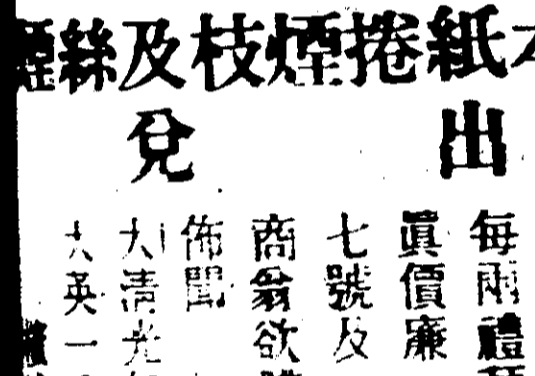 紙捲煙枝及絲煙
出兌
每兩禮
眞價廉
七號及
商翁欲
佈聞
大清光
大英一